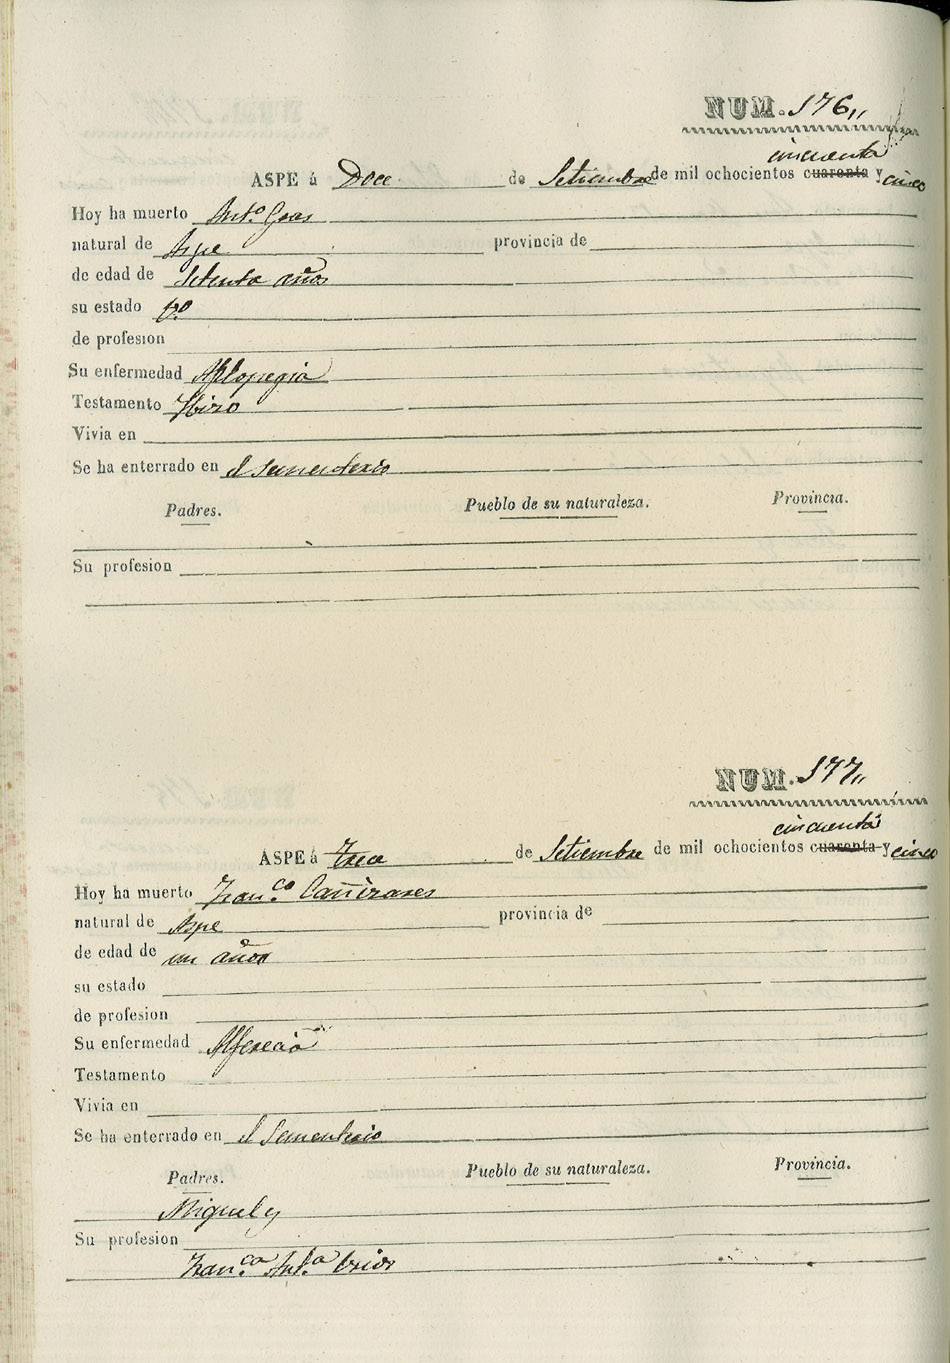 NUM. 176,,
cincuenta
ASPE á Doce de Setiembre de mil ochocientos cuarenta y cinco
Hoy ha muerto Ant.º Gras
natural de Aspe provincia de
de edad de Setenta años
su estado
de profesion
Su enfermedad
Testamento Hizo
Vivia en
Se ha enterrado en el Sementerio
Padres. Pueblo de su naturaleza. Provincia.
Su profesion
NUM. 177,,
cincuenta
ASPE á Trece de Setiembre de mil ochocientos cuarenta y cinco
Hoy ha muerto Fran.co Cañizares
natural de Aspe provincia de
de edad de un años
su estado
de profesion
Su enfermedad Alferecia
Testamento
Vivia en
Se ha enterrado en el Sementerio
Padres. Pueblo de su naturaleza. Provincia.
Miguel y
Su profesion
Fran.ca Ant.a Urios